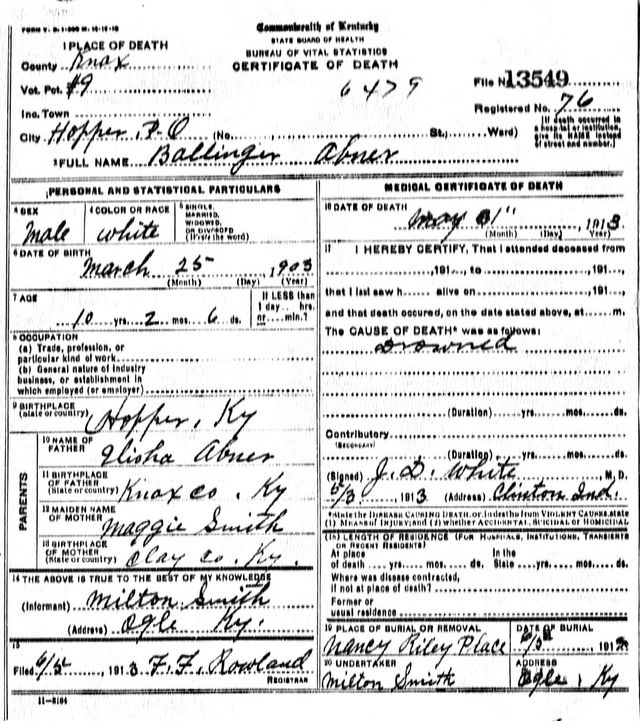 FORM V. S. 1-200 M. 10-10-10
Commonwealth of Kentucky
STATE BOARD OF HEALTH
BUREAU OF VITAL STATISTICS
CERTIFICATE OF DEATH
1 PLACE OF DEATH
County Knox
Vot. Pct. #9
Inc. Town
City Hopper, P.O (No. St., Ward)
6479
File No. 13549
Registered No. 76
(If death occurred in a hospital or institution, give its NAME instead of street and number.)
2 FULL NAME Ballinger Abner
PERSONAL AND STATISTICAL PARTICULARS
3 SEX Male
4 COLOR OR RACE White
5 SINGLE, MARRIED, WIDOWED, OR DIVORCED (Write the word)
6 DATE OF BIRTH
March 25, 1903
(Month) (Day) (Year)
7 AGE
10 yrs. 2 mos. 6 ds.
If LESS than 1 day... hrs. or... min.?
8 OCCUPATION
(a) Trade, profession, or particular kind of work
(b) General nature of industry business, or establishment in which employed (or employer)
9 BIRTHPLACE (State or country) Hopper, Ky
PARENTS
10 NAME OF FATHER Elisha Abner
11 BIRTHPLACE OF FATHER (State or country) Knox co. Ky
12 MAIDEN NAME OF MOTHER Maggie Smith
13 BIRTHPLACE OF MOTHER (State or country) Clay co. Ky.
14 THE ABOVE IS TRUE TO THE BEST OF MY KNOWLEDGE
(Informant) Milton Smith
(Address) Ogle Ky.
15
Filed 6/5, 1913 F. F. Rowland
REGISTRAR
11-3184
MEDICAL CERTIFICATE OF DEATH
16 DATE OF DEATH
May 31", 1913
(Month) (Day) (Year)
17 I HEREBY CERTIFY, That I attended deceased from
, 191 , to , 191 ,
that I last saw h alive on , 191 ,
and that death occured, on the date stated above, at m.
The CAUSE OF DEATH* was as follows:
Drowned
(Duration) yrs. mos. ds.
Contributory
(SECONDARY)
(Duration) yrs. mos. ds.
(Signed) J. D. White, M. D.
6/3, 1913 (Address) Clinton Ind.
*State the DISEASE CAUSING DEATH, or, in deaths from VIOLENT CAUSES, state (1) MEANS OF INJURY; and (2) whether ACCIDENTAL, SUICIDAL OR HOMICIDAL
(18) LENGTH OF RESIDENCE (FOR HOSPITALS, INSTITUTIONS, TRANSIENTS OR RECENT RESIDENTS)
At place of death yrs. mos. ds. In the State yrs. mos. ds.
Where was disease contracted, if not at place of death?
Former or usual residence
19 PLACE OF BURIAL OR REMOVAL
Nancy Riley Place
DATE OF BURIAL
191
20 UNDERTAKER
Milton Smith
ADDRESS
Ogle, Ky